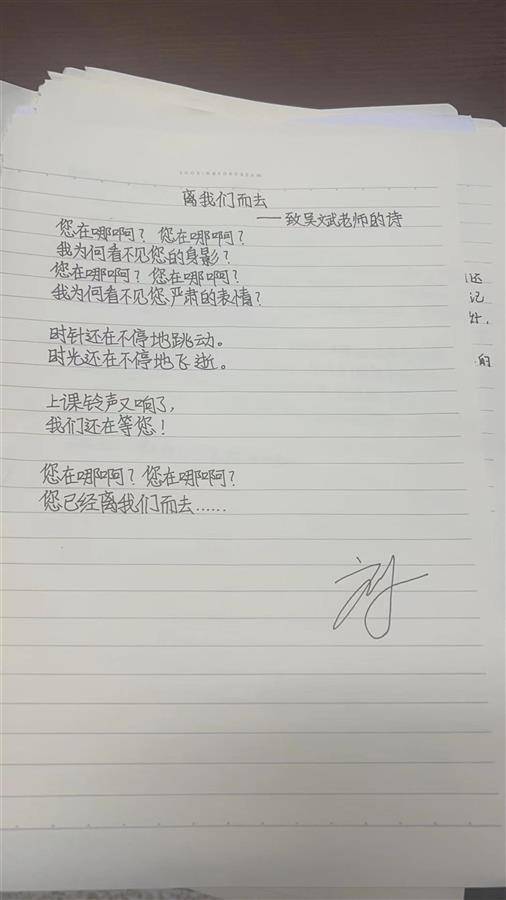 离我们而去
——致吴斌老师的诗
您在哪啊？您在哪啊？
我为何看不见您的身影？
您在哪啊？您在哪啊？
我为何看不见您严肃的表情？
时针还在不停地跳动。
时光还在不停地飞逝。
上课铃声又响了，
我们还在等您！
您在哪啊？您在哪啊？
您已经离我们而去……
记
的